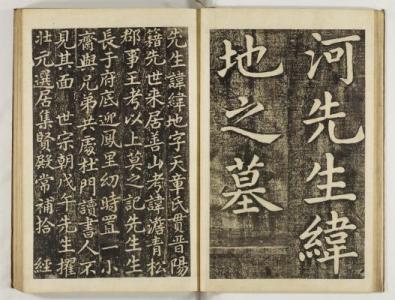 河先生緯
地之墓
先生諱緯地字天章氏貫晋陽
籍先世来居善山考諱澹青松
郡事王考以上莫之記先生生
長于府底迎鳳里幼時置一小
齋與兄弟共處杜門讀書人不
見其面 世宗朝戊午先生擢
壯元選居集賢殿常補拾 經